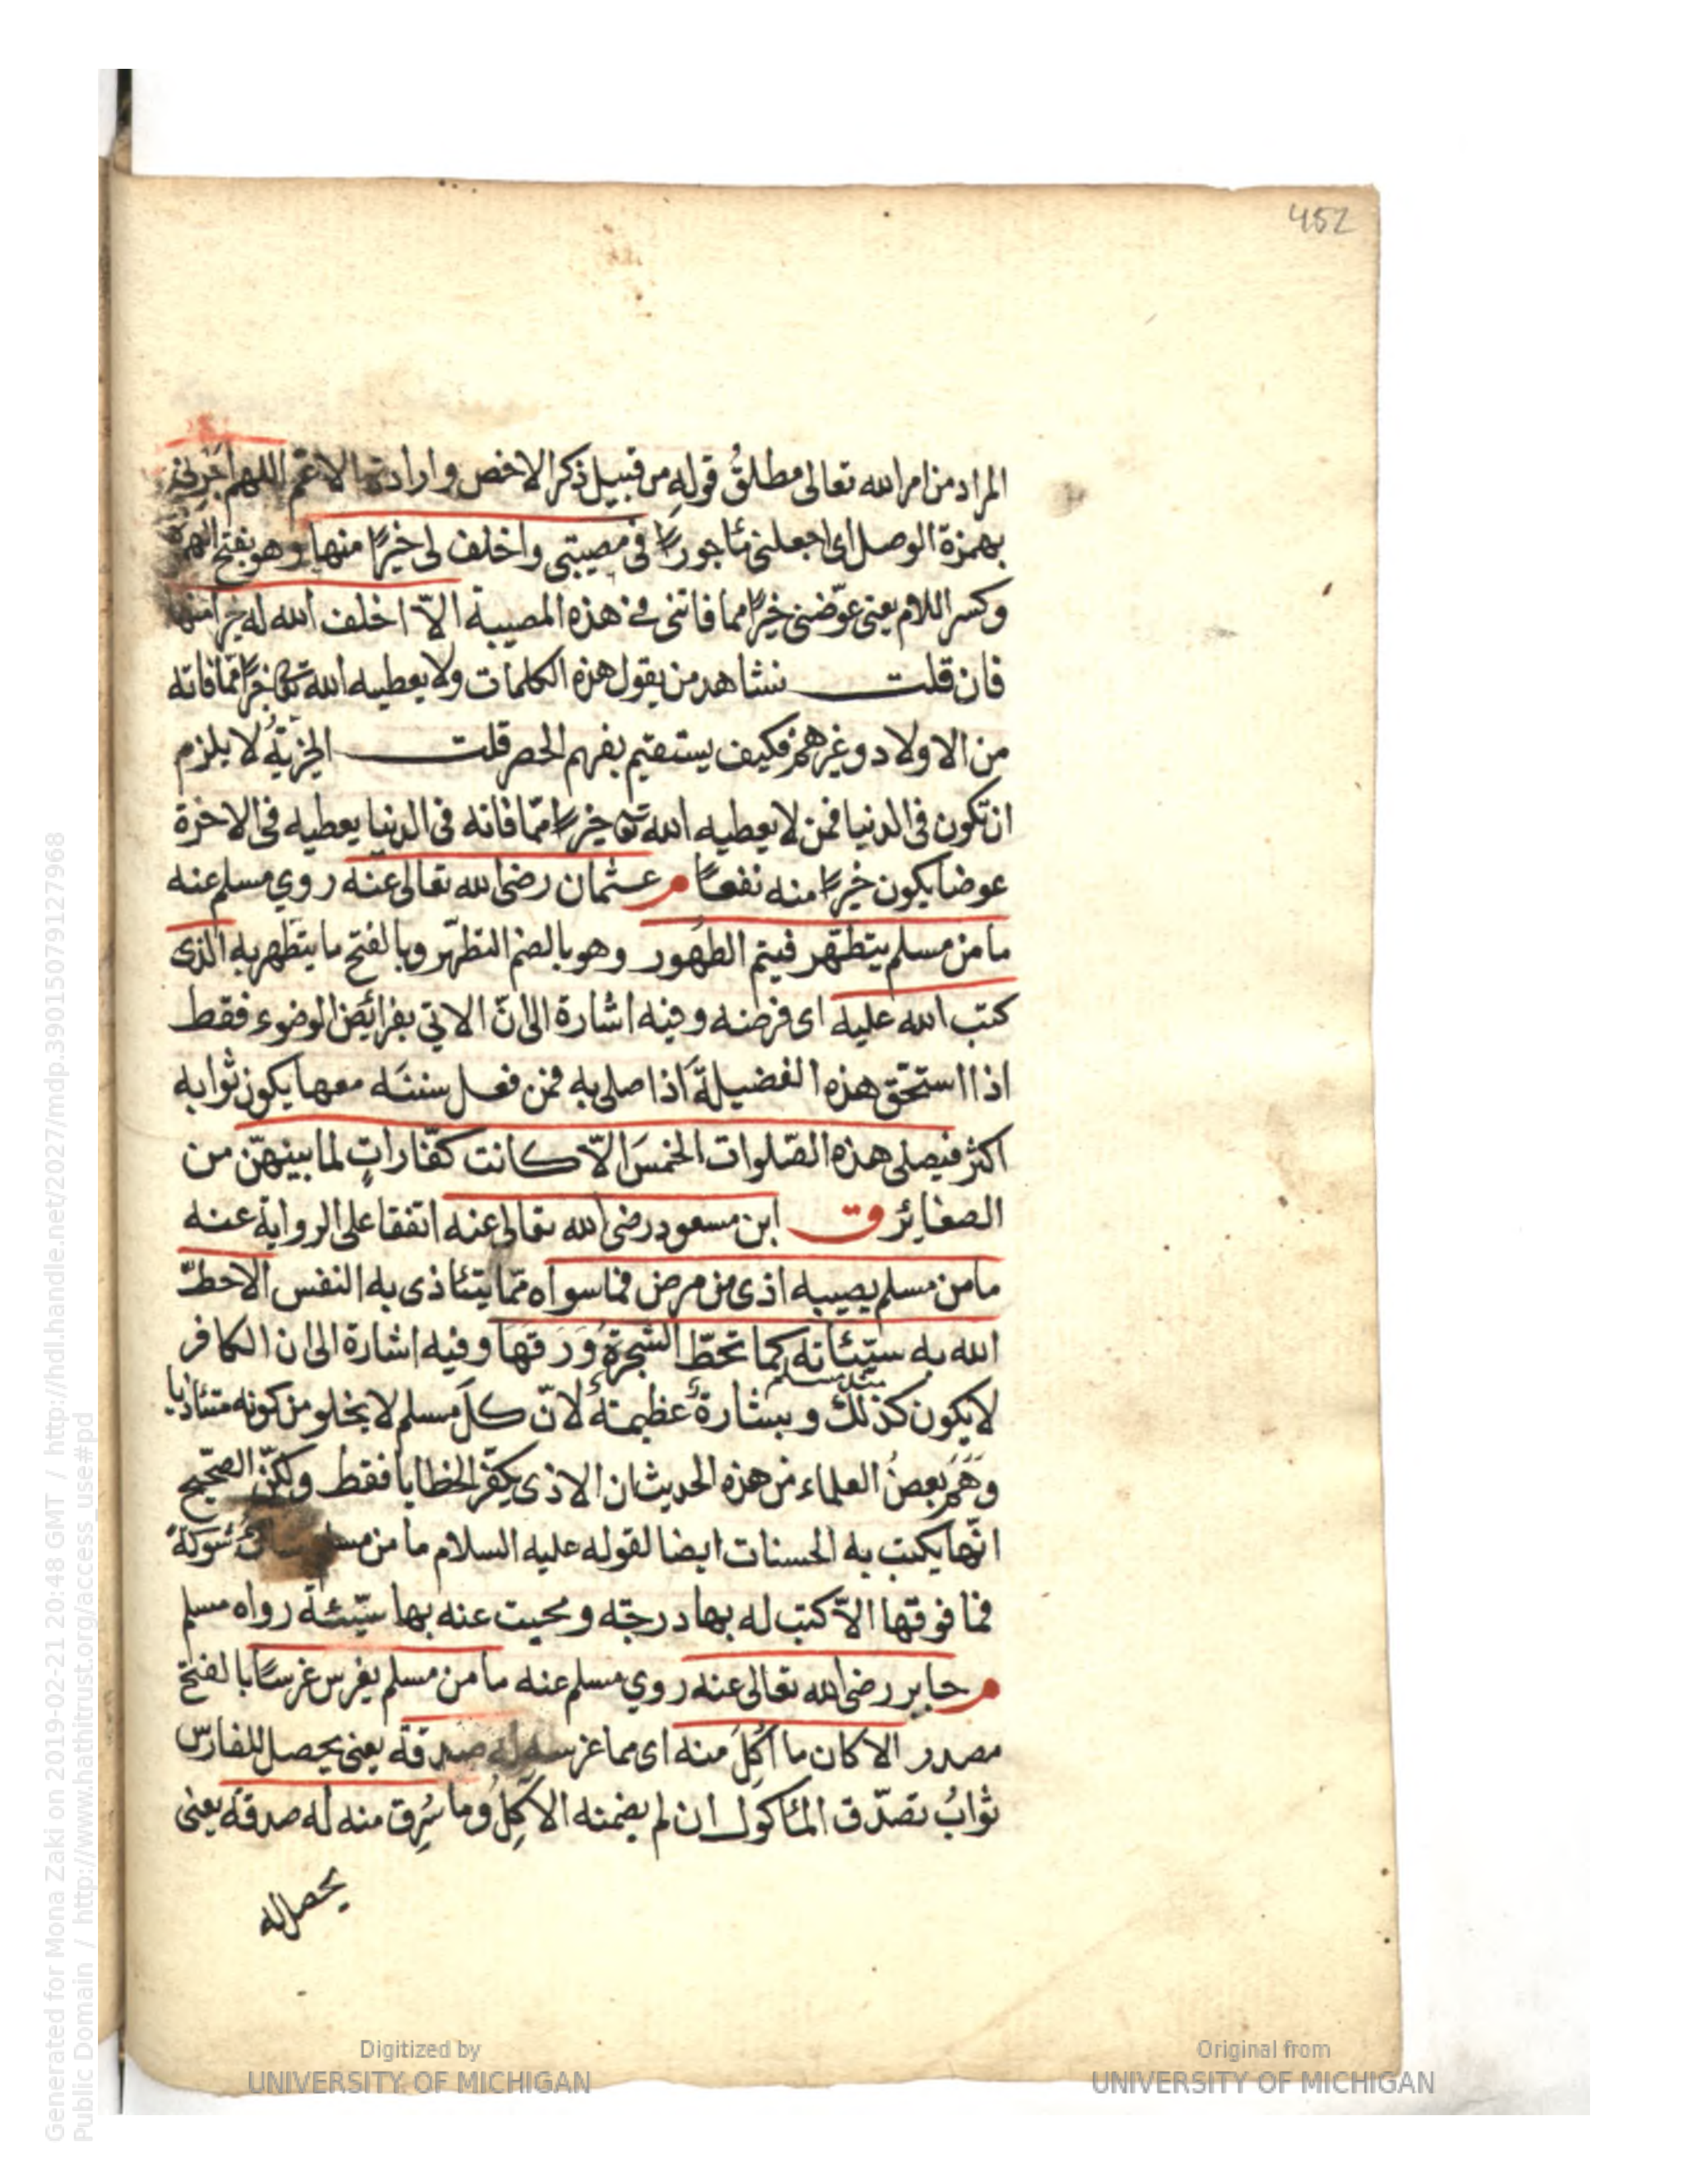 452
المراد من امر الله تعالى مطلقُ قولهِ من قبيل ذكر الاخص وارادة الاعمّ اللهم أجرنى
بهمزة الوصل اى اجعلنى مأجورًا فى مصيبتى واخلف لى خيرًا منها وهو بفتح الهمزة
وكسر اللام يعنى عوّضنى خيرًا مما فاتنى فى هذه المصيبة الاّ اخلف الله له خيرا منها
فان قلت نشاهد من يقول هذه الكلمات ولا يعطيه الله تعالى خيرًا ممّا فاته
من الاولاد وغيرهم فكيف يستقيم بفهم الحصر قلت الخيريّةُ لا يلزم
ان تكون فى الدنيا فمن لا يعطيه الله تعالى خيرًا ممّا فاته فى الدنيا يعطيه فى الاخرة
عوضا يكون خيرًا منه نفعًا م عثمان رضى الله تعالى عنه روي مسلم عنه
ما من مسلم يتطهّر فيتم الطهُور وهو بالضم التطهّر وبالفتح ما يتطهر به الذى
كتب الله عليه اى فرضه وفيه اشارة الى انّ الاتي بفرائض الوضوء فقط
اذا استحقّ هذه الفضيلةَ اذا صلى به فمن فعل سننَه معها يكون ثوابه
اكثر فيصلى هذه الصّلوات الخمسَ الاّ كانت كفّاراتٍ لما بينهنّ من
الصغاير ق ابن مسعود رضى الله تعالى عنه اتفقا على الرواية عنه
ما من مسلم يصيبه اذى من مرض فما سواه ممّا يتأذى به النفس الا حطّ
الله به سيّئاته كما تحطّ الشجرةُ وَرَقهَا وفيه اشارة الى ان الكافر
لا يكون كذلك وبشارةٌ عظيمةٌ لانّ كلّ مسلم لا يخلو من كونه متأذيا
وَهَمَ بعضُ العلماء من هذه الحديث ان الاذى يكفّر الخطايا فقط ولكنّ الصّحيح
انّها يكتب به الحسنات ايضا لقوله عليه السلام ما من مسلم يشاك شوكةً
فما فوقها الاّ كتب له بها درجته ومحيت عنه بها سيّئة رواه مسلم
م جابر رضى الله تعالى عنه روي مسلم عنه ما من مسلم يغرس غرسًا بالفتح
مصدر الا كان ما اكُلَ منه اى مما غرسه له صدقة يعنى يحصل للغارس
ثوابُ تصدّق المأكول ان لم يضمنه الآكِلُ وما سُرِق منه له صدقة يعنى
يحصل له
Generated for Mona Zaki on 2019-02-21 20:48 GMT / http://hdl.handle.net/2027/mdp.39015079127968
Public Domain / http://www.hathitrust.org/access_use#pd
Digitized by
UNIVERSITY OF MICHIGAN
Original from
UNIVERSITY OF MICHIGAN